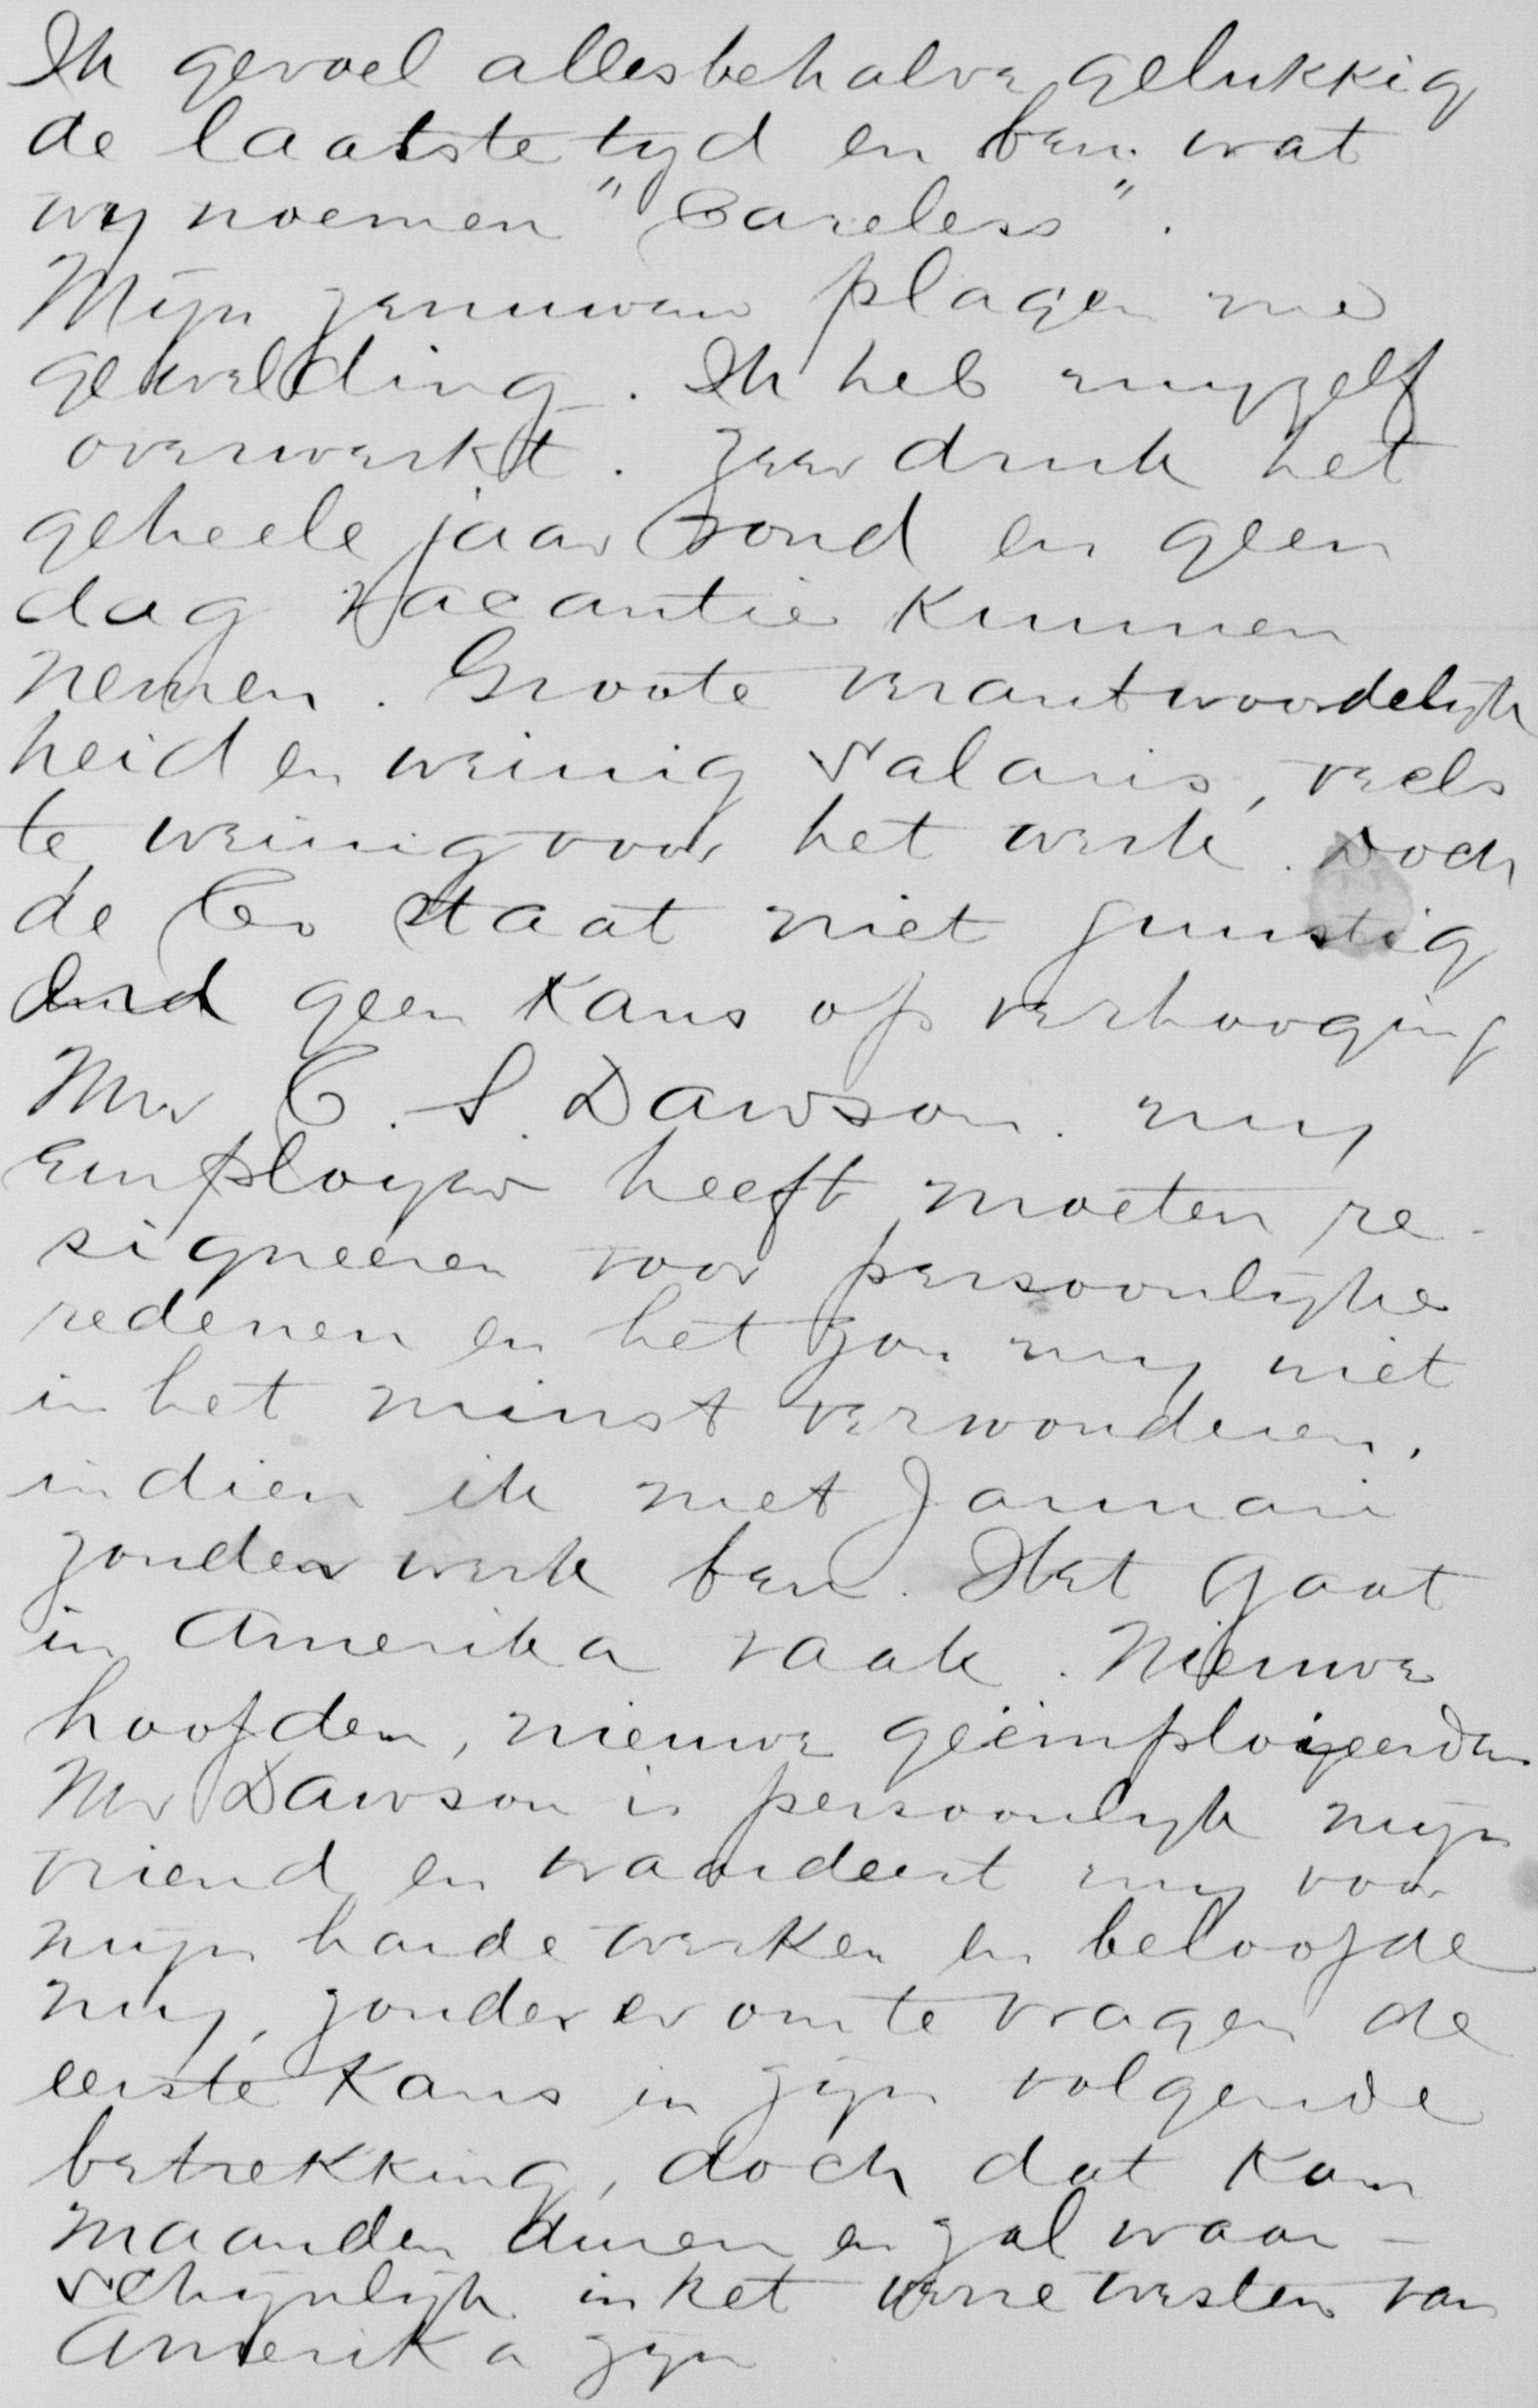 Ik gevoel allesbehalve gelukkig
de laatste tyd en ben wat
wy noemen "Careless".
Mijn zenuwen plagen me
gewelding. Ik heb myzelf
overwerkt. Zeer druk het
geheele jaar rond en geen
dag vacantie kunnen
nemen. Groote verantwoordelijk
heid en weinig salaris, veels
te weinig voor het werk. Doch
de Co staat niet gunstig
dus geen kans op verhooging
Mr C. S. Dawson. my
employer heeft moeten re-
signeeren voor persoonlijke
redenen en het zou my niet
in het minst verwonderen,
indien ik met Januari
zonder werk ben. Het gaat
in Amerika vaak. Nieuwe
hoofden, nieuwe geëmploijeerden
Mr Dawson is persoonlyk mijn
vriend en waardeert my voor
mijn harde werken en beloofde
my, zonder er om te vragen de
eerste kans in zijn volgende
betrekking, doch dat kan
maanden duren en zal waar-
schijnlijk in het verre westen van
Amerika zijn